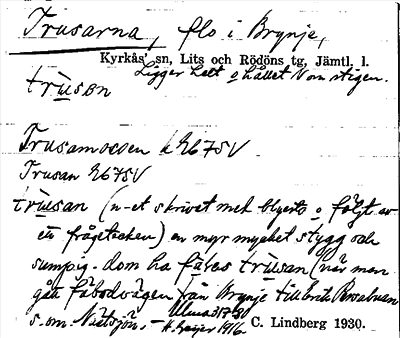 Trusarna, flo i Brynje,
Kyrkås' sn, Lits och Rödöns tg, Jämtl. l.
Ligger helt o hållet N om stigen.
trusen
Trusamossen k 2675V
Trusan 2675V
trusan (n-et skrivet med blyerts o följt av
ett frågetecken) en myr mycket stygg och
sumpig. dom ha fäves trusan (när man
gått fäbodvägen från Brynje till
s. om Nätsjön. –
H. Geijer 1916. C. Lindberg 1930.